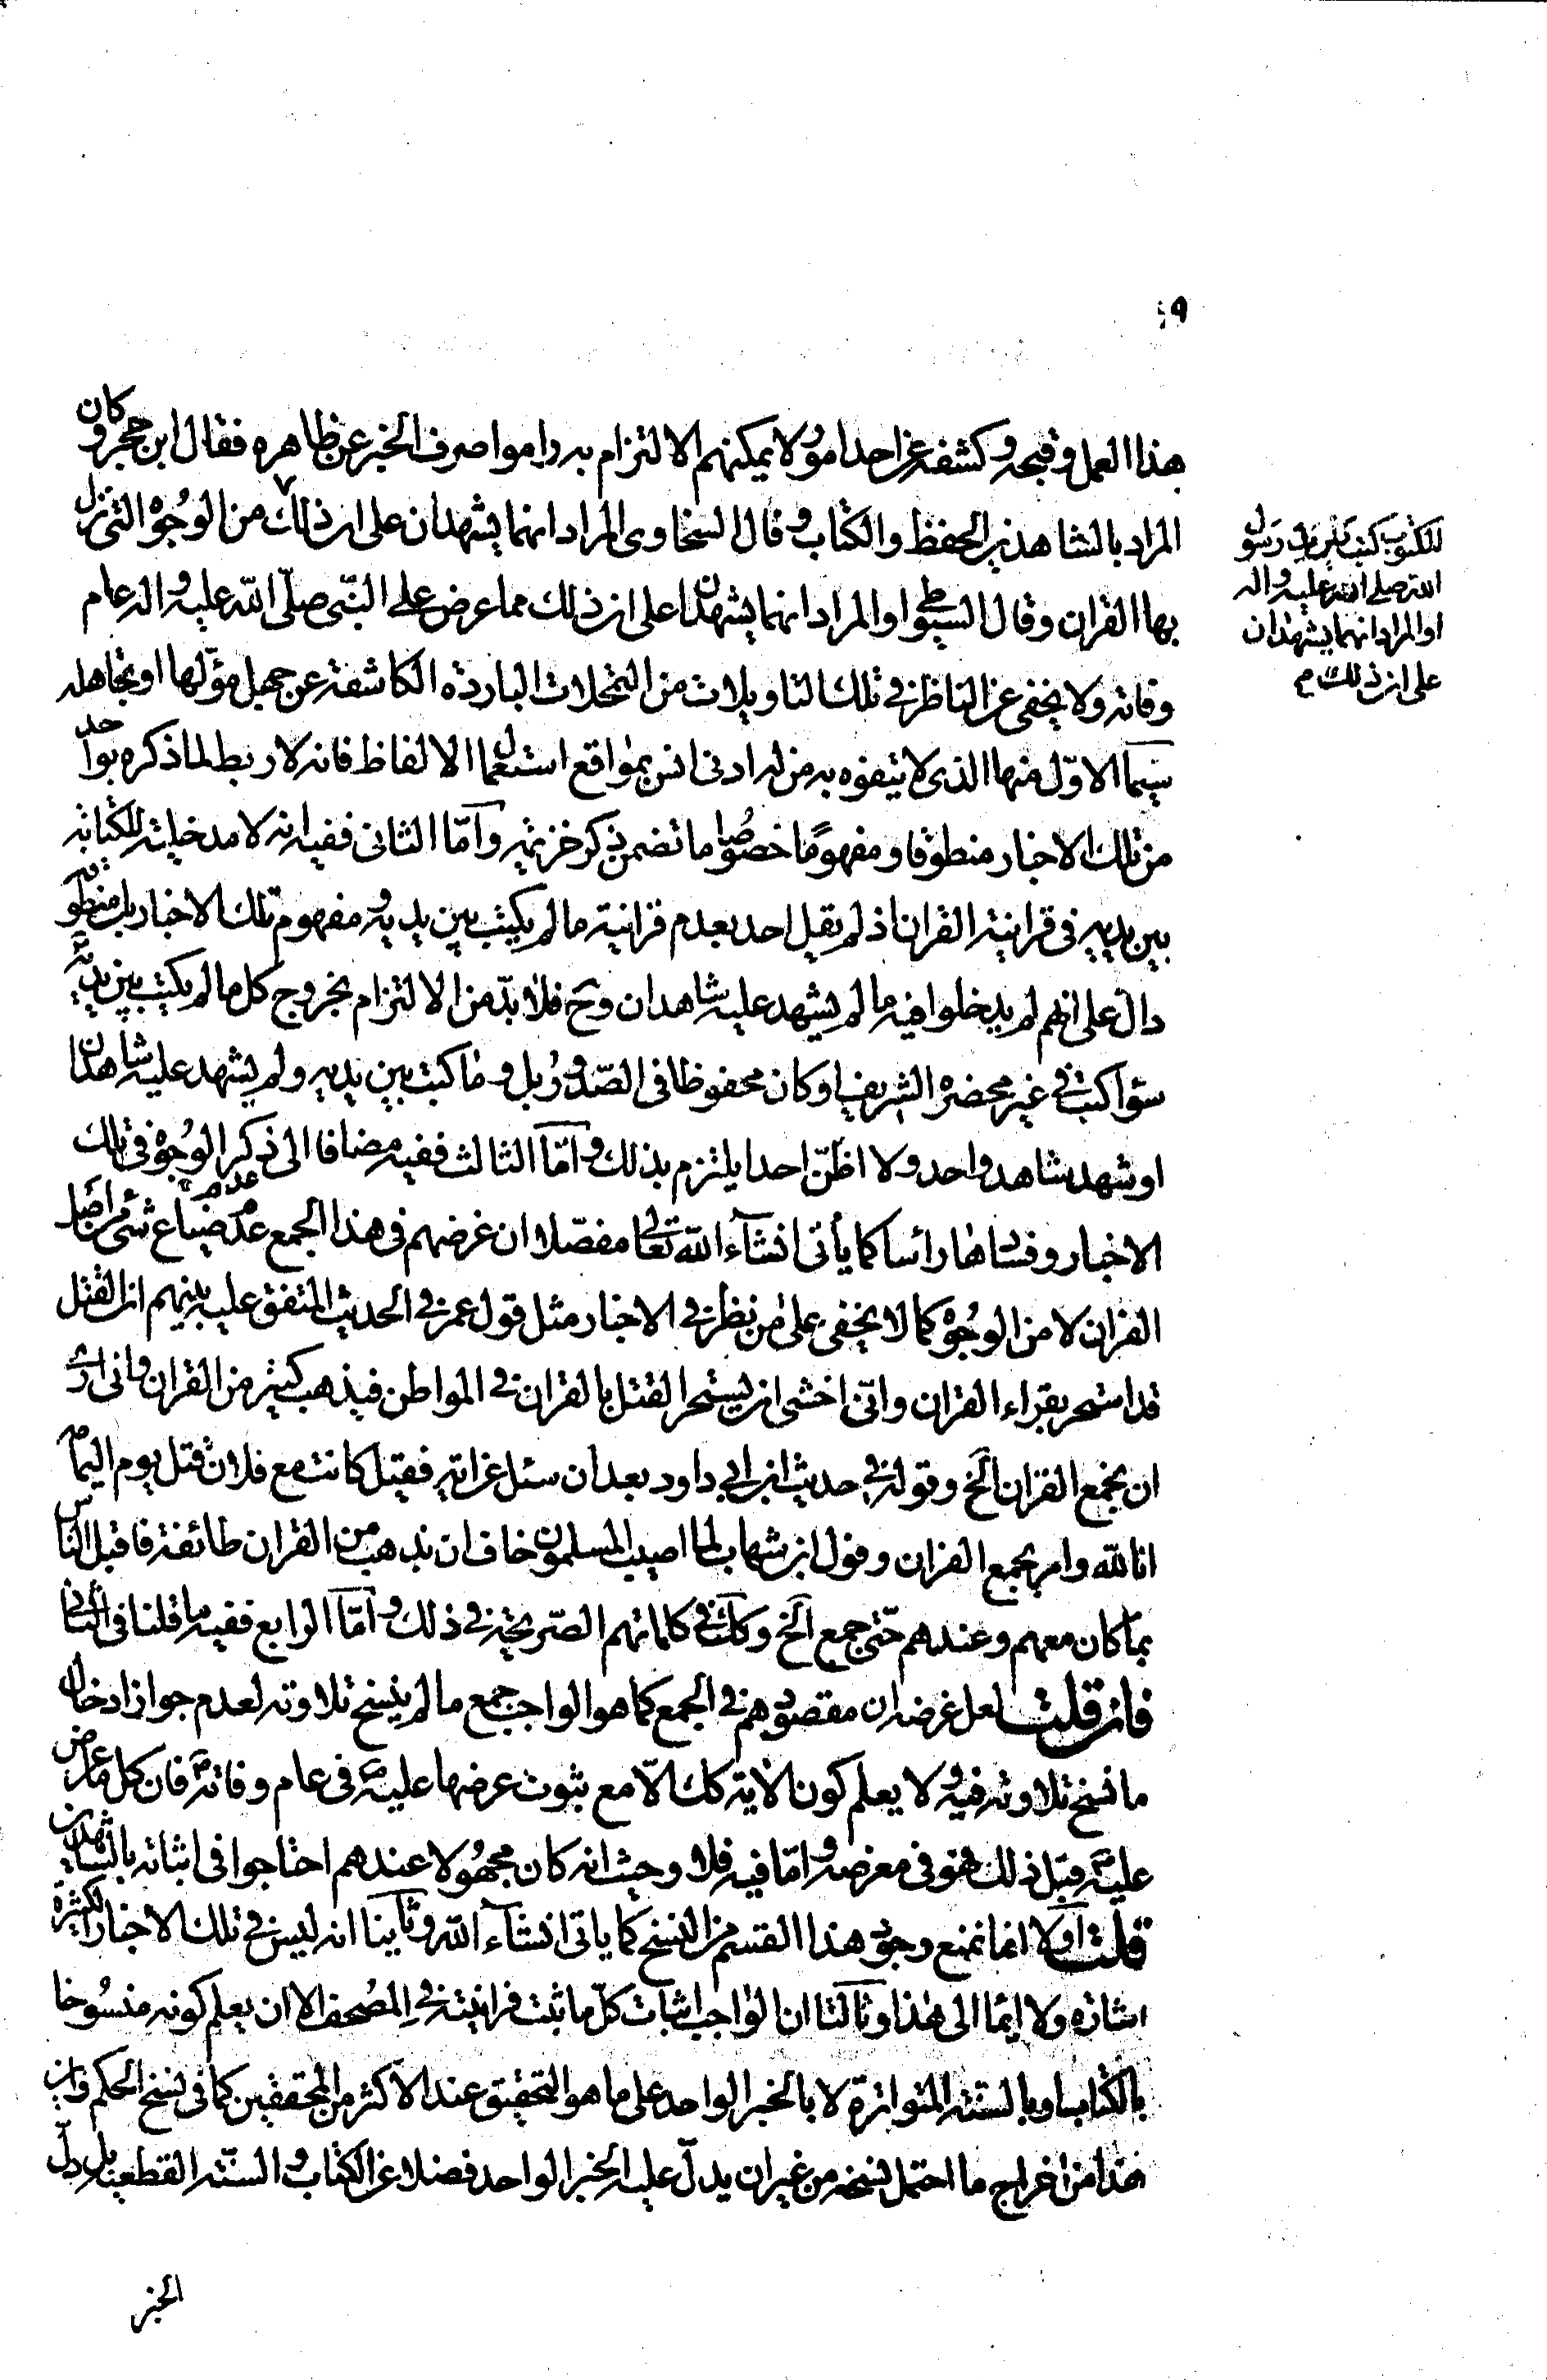 ٩
هذا العمل وقبحه وكشفه عن احد امور لا يمكنهم الالتزام به داموا صرف الخبر عن ظاهره فقال ابن حجر وكان
المراد بالشاهدين الحفظ والكتاب وقال السخاوى المراد انهما يشهدان على ان ذلك من الوجوه التى نزل
بها القران وقال السيوطى او المراد انهما يشهدان على ان ذلك مما عرض على النبى صلّى الله عليه واله عام
وفاته ولا يخفى عن الناظر فى تلك التاويلات من التمحلات الباردة الكاشفة عن جهل مؤلها او تجاهله
سيما الاوّل منها الذى لا يتفوه به من له ادنى انس بمواقع استعمال الالفاظ فانه لا ربط لما ذكره بواحد
من تلك الاخبار منطوقا ومفهومًا خصوصا ما تضمن ذكر خزيمه وامّا الثانى ففيه انه لا مدخلية للكتابة
بين يديه فى قرانية القران اذ لم يقل احد بعدم قرانية ما لم يكتب بين يديه ومفهوم تلك الاخبار بل منطوقه
دالّ على انهم لم يدخلوا فيه ما لم يشهد عليه شاهدان وح فلا بدّ من الالتزام بخروج كل ما لم يكتب بين يديه
سواء كتب فى غير محضره الشريف او كان محفوظا فى الصّدور بل وما كتب بين يديه ولم يشهد عليه شاهدان
او شهد شاهد واحد ولا اظنّ احدا يلتزم بذلك وامّا الثالث ففيه مضافا الى ذكر الوجوه فى تلك
الاخبار وفسادها راسا كما يأتى انشآء الله تعالى مفصّلا ان غرضهم فى هذا الجمع عدم ضياع شئ من اصل
القران لا من الوجوه كما لا يخفى على من نظر فى الاخبار مثل قول عمر فى الحديث المتفق عليه بينهم ان القتل
قد استحر بقراء القران وانّى اخشى ان يستحر القتل بالقران فى المواطن فيذهب كثير من القران وانى ارى
ان يجمع القران الخ وقوله فى حديث ابن ابى داود بعد ان سئل عن اية فقيل كانت مع فلان قتل يوم اليمامه
انا لله وامر بجمع القران وقول ابن شهاب لما اصيب المسلمون خاف ان يذهب من القران طائفة فاقبل الناس
بما كان معهم وعندهم حتّى جمع الخ وكك فى كلماتهم الصّريحة فى ذلك وامّا الرابع ففيه ما قلنا فى الثانى
فان قلت لعل غرضه ان مقصودهم فى الجمع كما هو الواجب جمع ما لم ينسخ تلاوته لعدم جواز ادخال
ما نسخ تلاوته فيه ولا يعلم كون الاية كك الّا مع ثبوت عرضها عليه فى عام وفاته فان كل ما عرض
عليه قبل ذلك فهو فى معرضه وامّا فيه فلا وحيث انه كان مجهولا عندهم احتاجوا فى اثباته بالشاهدين
قلت اولا انما نمنع وجود هذا القسم من النسخ كما ياتى انشآء الله وثانيا انه ليس فى تلك الاخبار الكثيرة
اشارة ولا ايما الى هذا وثالثا ان الواجب اثبات كلّ ما ثبت قرانيته فى المصحف الا ان يعلم كونه منسوخا
بالكتاب او بالسنّة المتواترة لا بالخبر الواحد على ما هو التحقيق عند الاكثر من المحققين كما فى نسخ الحكم واين
هذا من اخراج ما احتمل نسخه من غير ان يدلّ عليه الخبر الواحد فضلا عن الكتاب والسنّة القطعية بل دلّ
الخبر
المكتوب كتب بين يدى رسول
الله صلى الله عليه واله
او المراد انهما يشهدان
على ان ذلك م